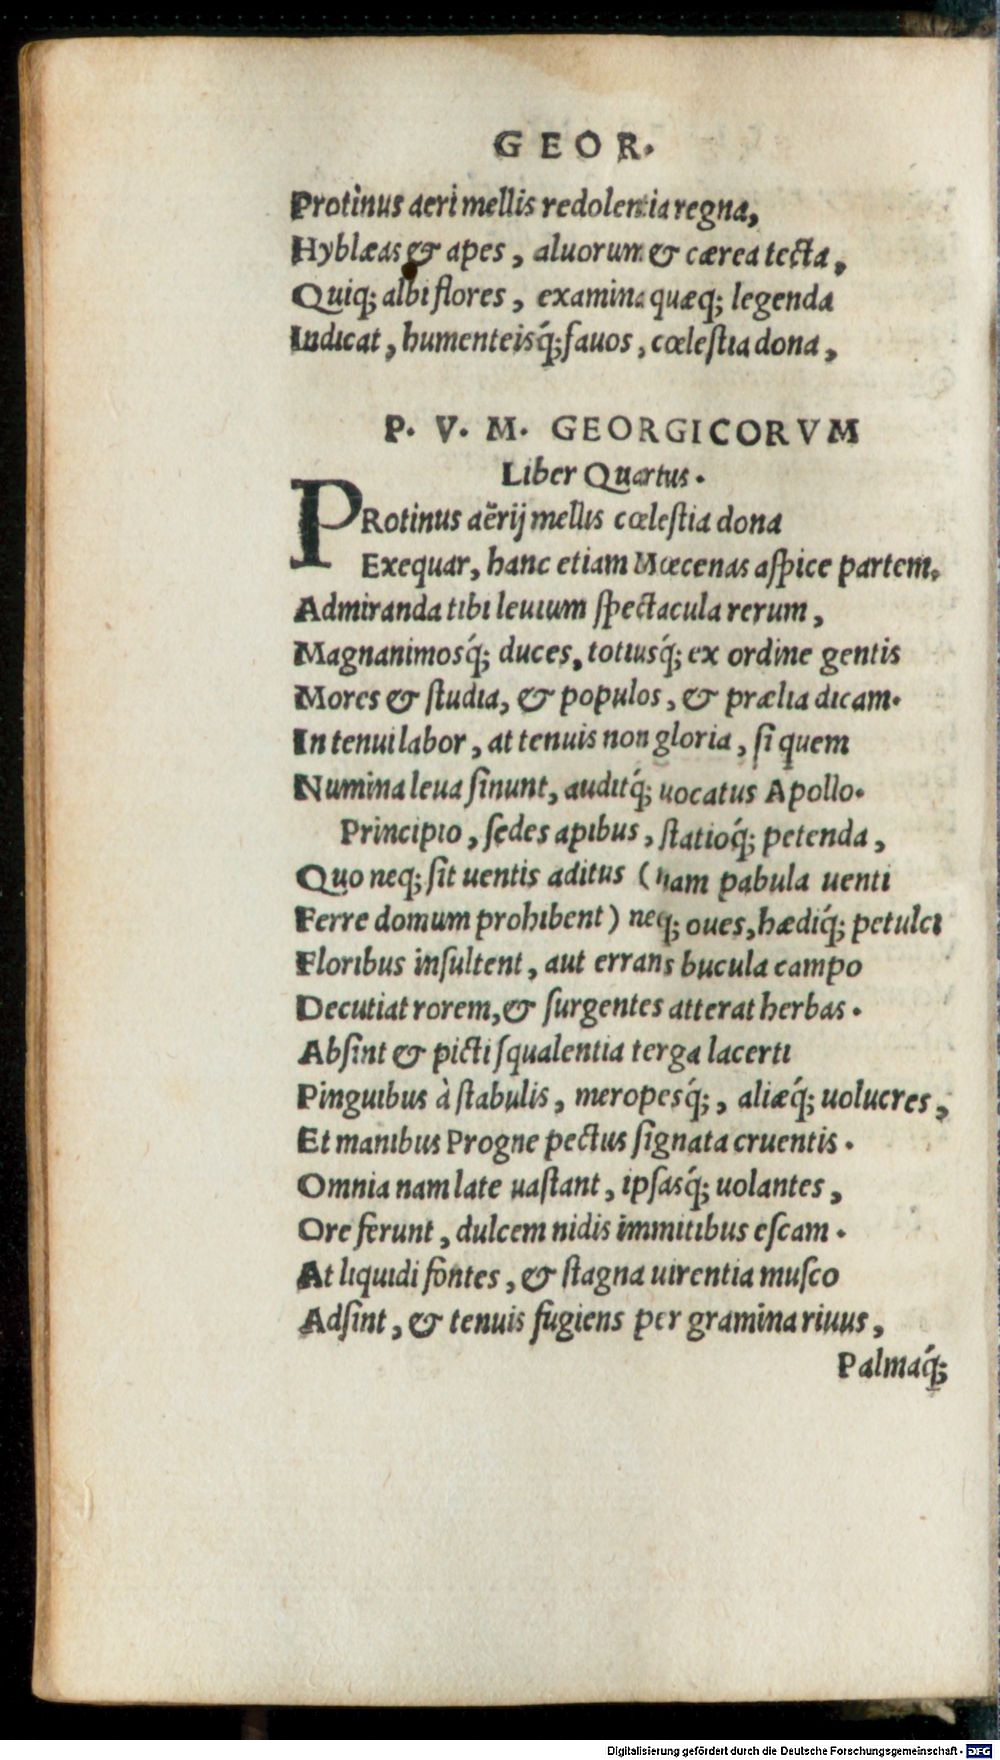 GEOR.
Protinus aeri mellis redolentia regna,
Hyblæas & apes, aluorum & cærea tecta,
Quiq; albi flores, examina quæq; legenda
Indicat, humenteisq́; fauos, cœlestia dona,
P. V. M. GEORGICORVM
Liber Quartus.
PRotinus aërij mellis cœlestia dona
Exequar, hanc etiam Mœcenas aspice partem.
Admiranda tibi leuium spectacula rerum,
Magnanimosq́; duces, totiusq́; ex ordine gentis
Mores & studia, & populos, & prælia dicam.
In tenui labor, at tenuis non gloria, si quem
Numina leua sinunt, auditq́; uocatus Apollo.
Principio, sedes apibus, statioq́; petenda,
Quo neq; sit uentis aditus (nam pabula uenti
Ferre domum prohibent) neq; oues, hædiq́; petulci
Floribus insultent, aut errans bucula campo
Decutiat rorem, & surgentes atterat herbas.
Absint & picti squalentia terga lacerti
Pinguibus à stabulis, meropesq́;, aliæq́; uolucres,
Et manibus Progne pectus signata cruentis.
Omnia nam late uastant, ipsasq́; uolantes,
Ore ferunt, dulcem nidis immitibus escam.
At liquidi fontes, & stagna uirentia musco
Adsint, & tenuis fugiens per gramina riuus,
Palmaq́;
Digitalisierung gefördert durch die Deutsche Forschungsgemeinschaft - DFG